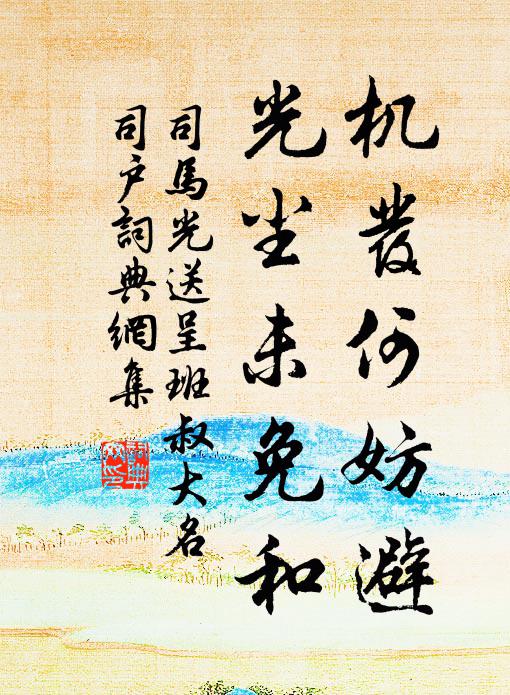 机發何妨避
光尘未免和
司馬光送呈班叔大名
司户詞典網集